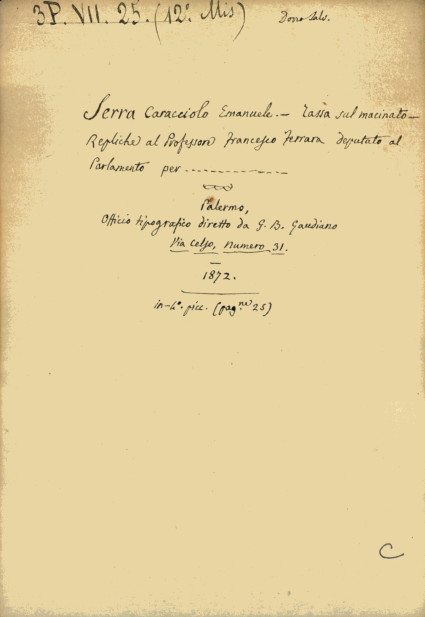 3P. VII. 25. (12.º Mis)
Dono Salv.
Serra Caracciolo Emanuele. — Tassa sul macinato —
Repliche al Professore Francesco Ferrara deputato al
Parlamento per - - - - - - - - - - -
Palermo,
Officio tipografico diretto da G. B. Gaudiano
Via Celso, numero 31.
1872.
in-4º. picc. (pag.ne 25)
C